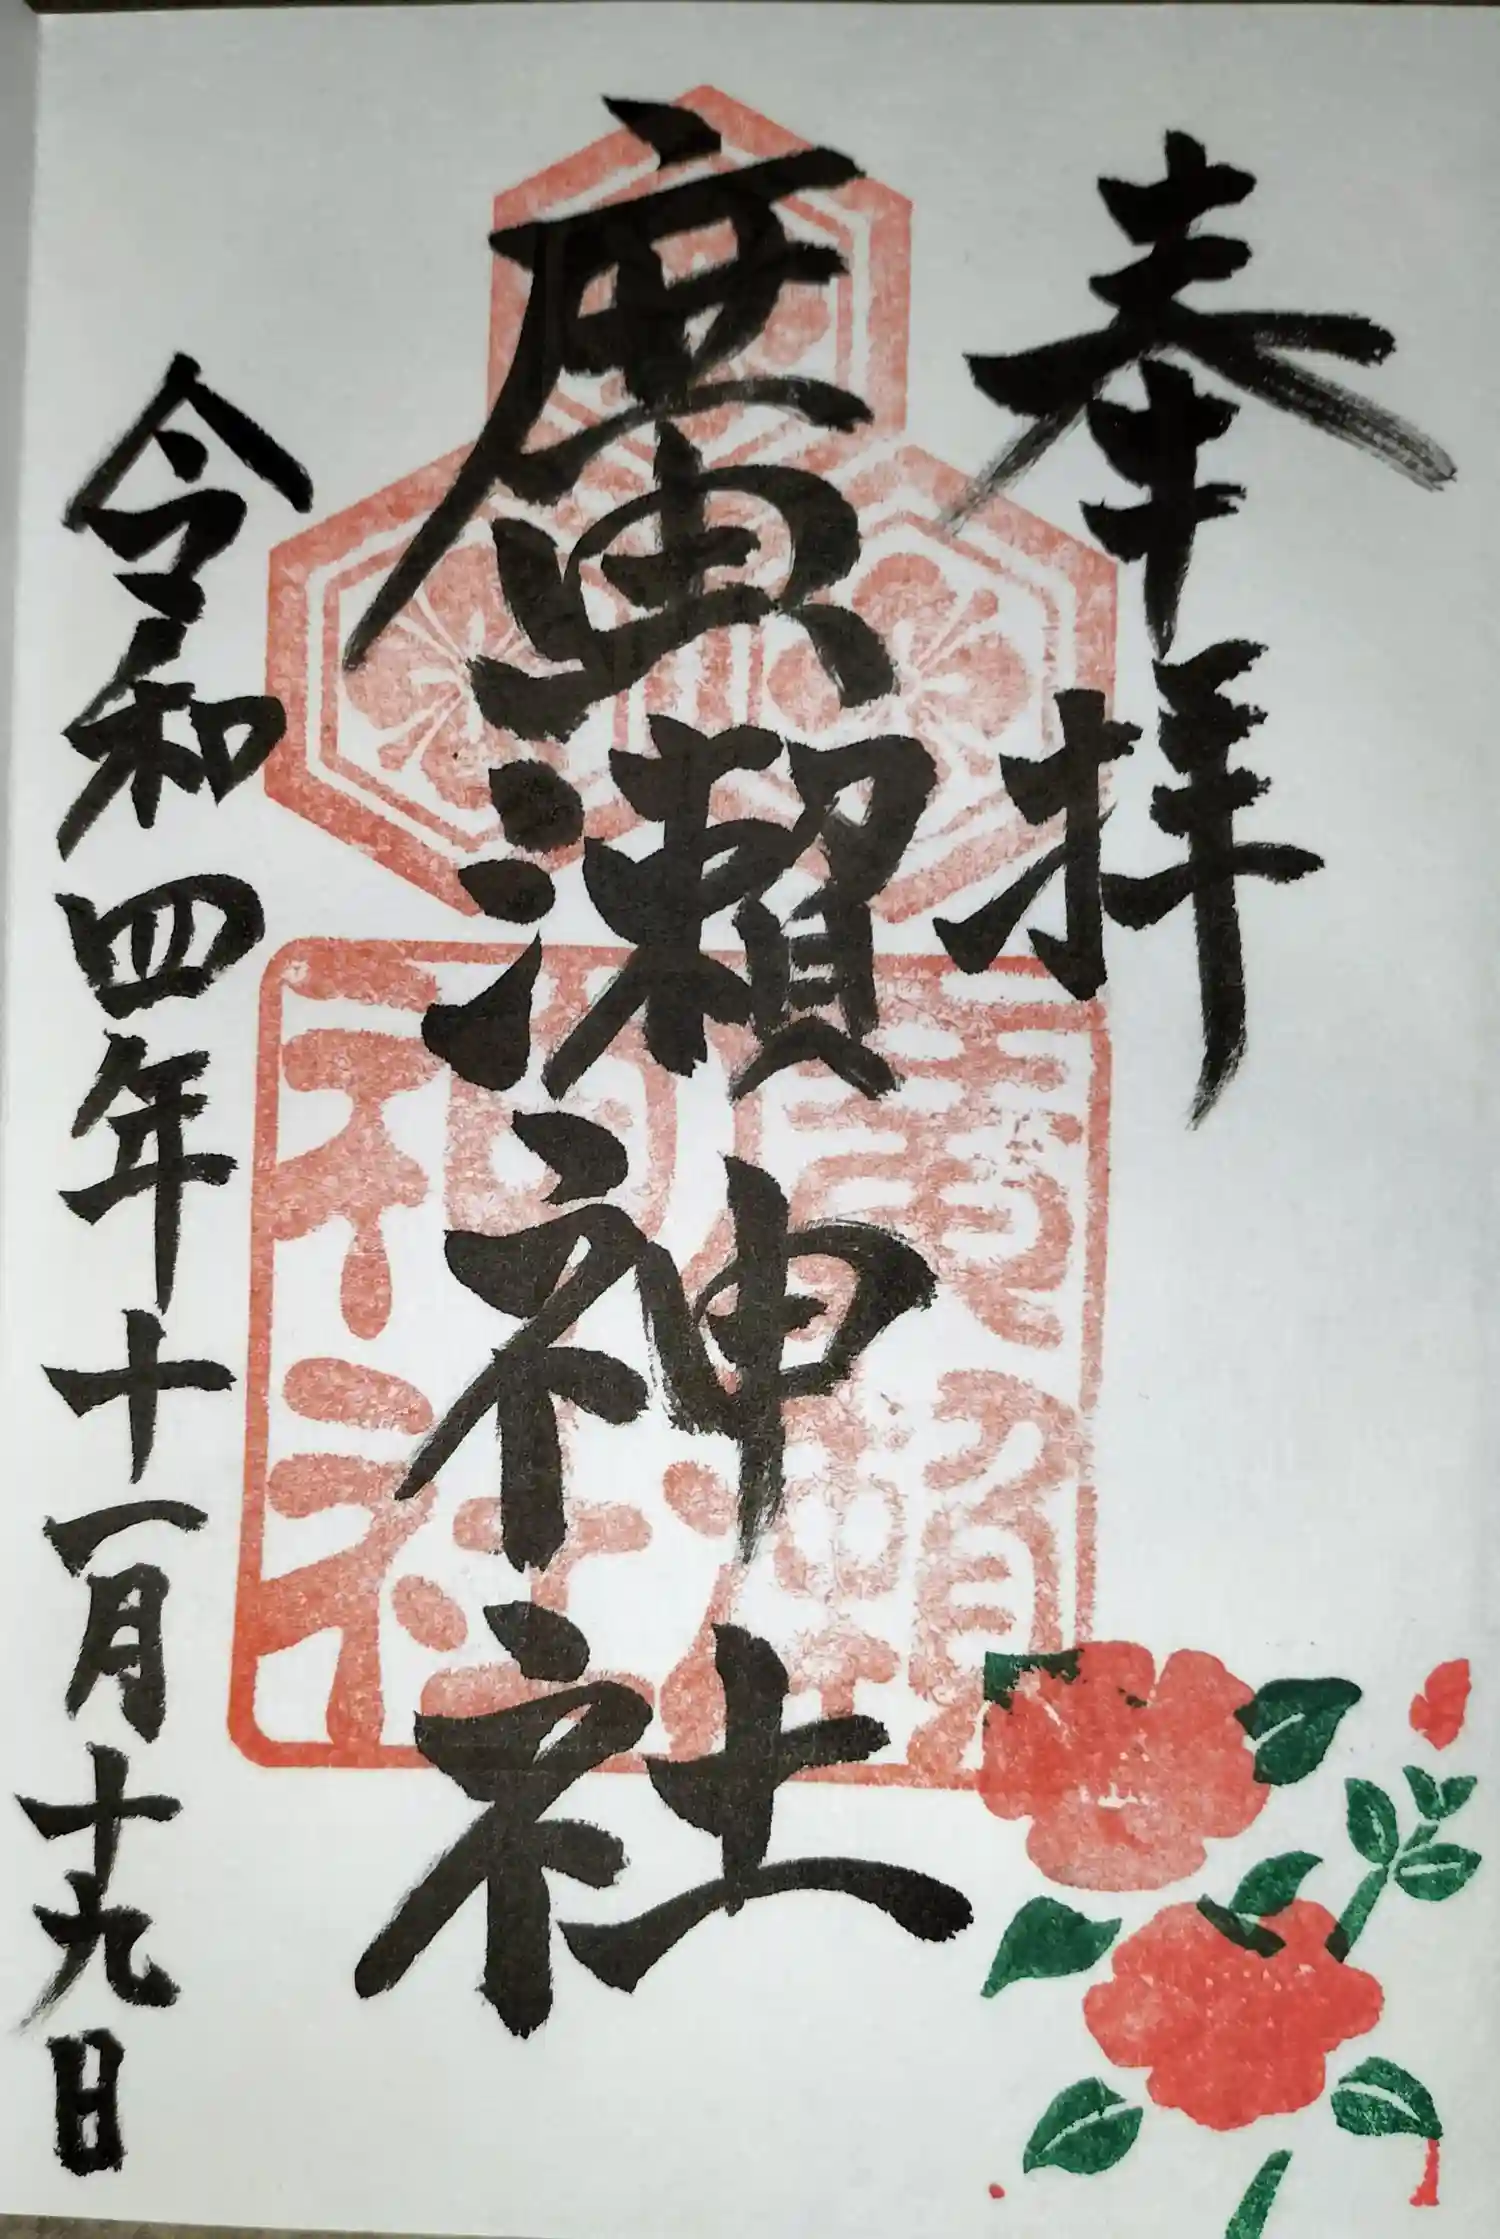 奉拝
廣瀬神社
廣瀬
神社
令和四年十一月十九日